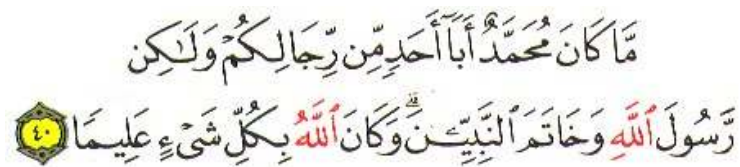 مَّا كَانَ مُحَمَّدٌ أَبَآ أَحَدٍ مِّن رِّجَالِكُمْ وَلَـٰكِن
رَّسُولَ ٱللَّهِ وَخَاتَمَ ٱلنَّبِيِّـۧنَ ۗ وَكَانَ ٱللَّهُ بِكُلِّ شَىْءٍ عَلِيمًا ٤٠